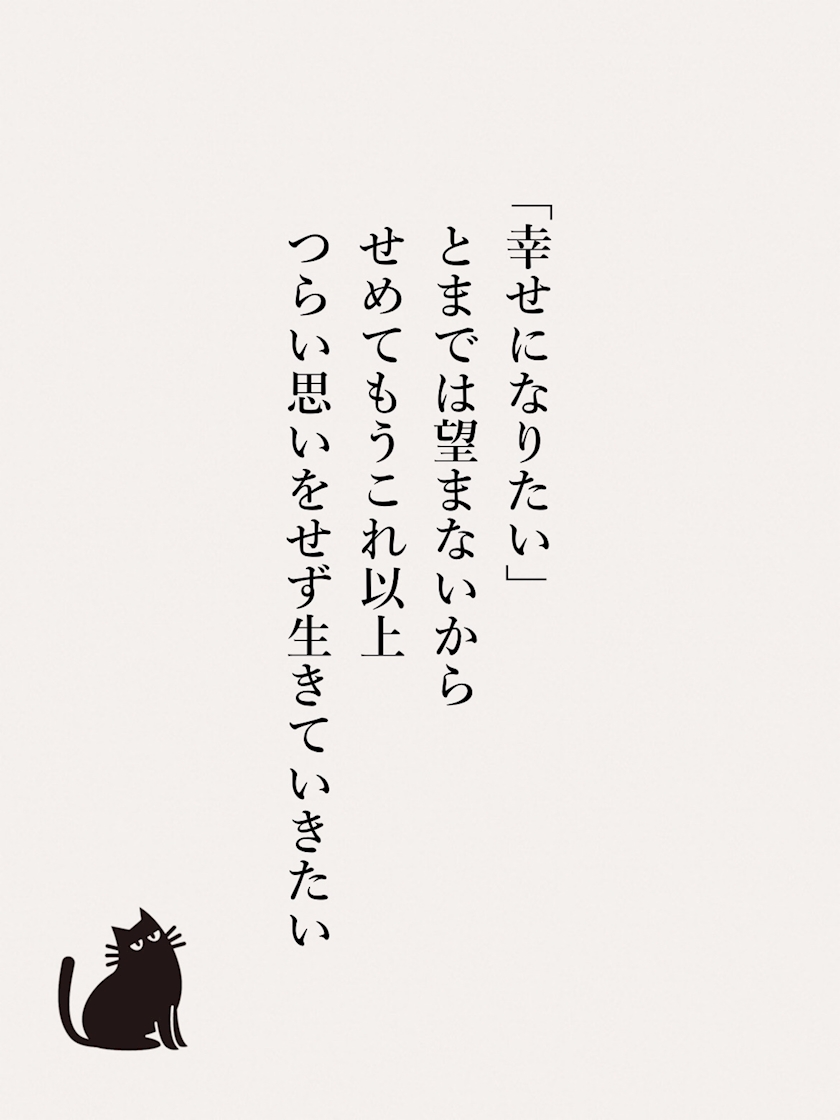 「幸せになりたい」
とまでは望まないから
せめてもうこれ以上
つらい思いをせず生きていきたい